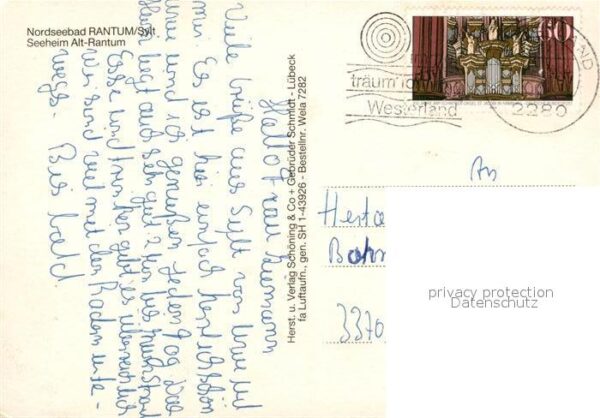 Nordseebad RANTUM/Sylt
Seeheim Alt-Rantum
Hallo Frau
Viele Grüße aus Sylt von Uwe und
mir. Es ist hier einfach herrlich schön
und wir genießen jeden Tag. Das
Haus liegt auch sehr gut 2 Min bis
Esse und trinken geht es
Wir sind viel mit den Rädern unter-
wegs. Bis bald
Herst. u. Verlag Schöning & Co + Gebrüder Schmidt - Lübeck
fa Luftaufn., gen. SH 1-43926 - Bestellnr. Wela 7282
60
träum
Westerland
2280
An
Herta
Bahn
3370
privacy protection
Datenschutz